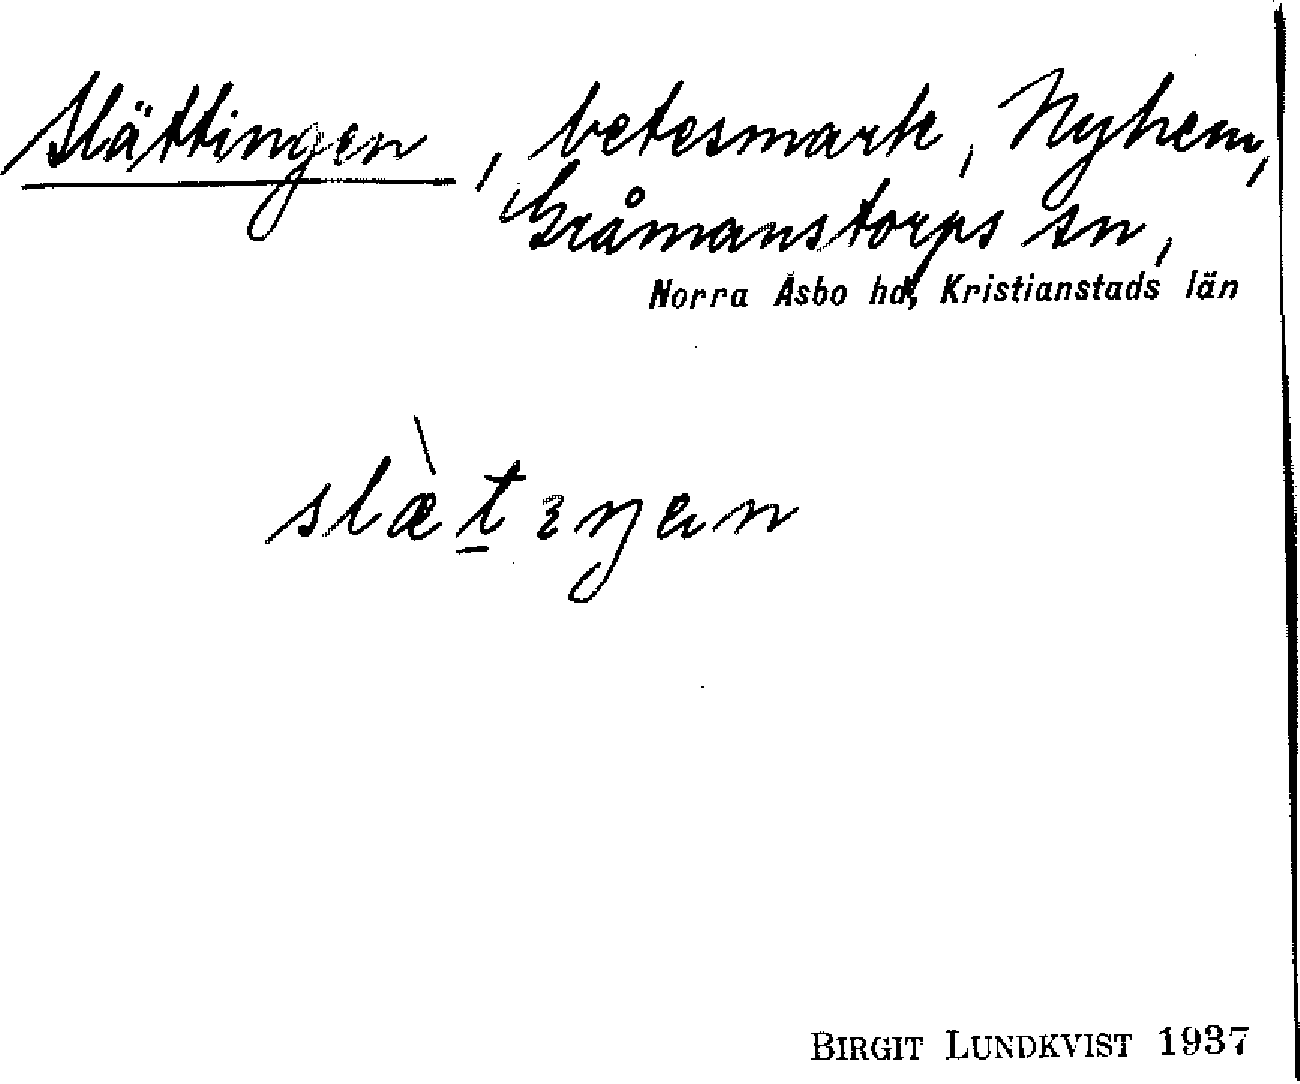 Slättingen, betesmark, Nyhem,
Gråmanstorps sn,
Norra Åsbo hd, Kristianstads län
BIRGIT LUNDKVIST 1937